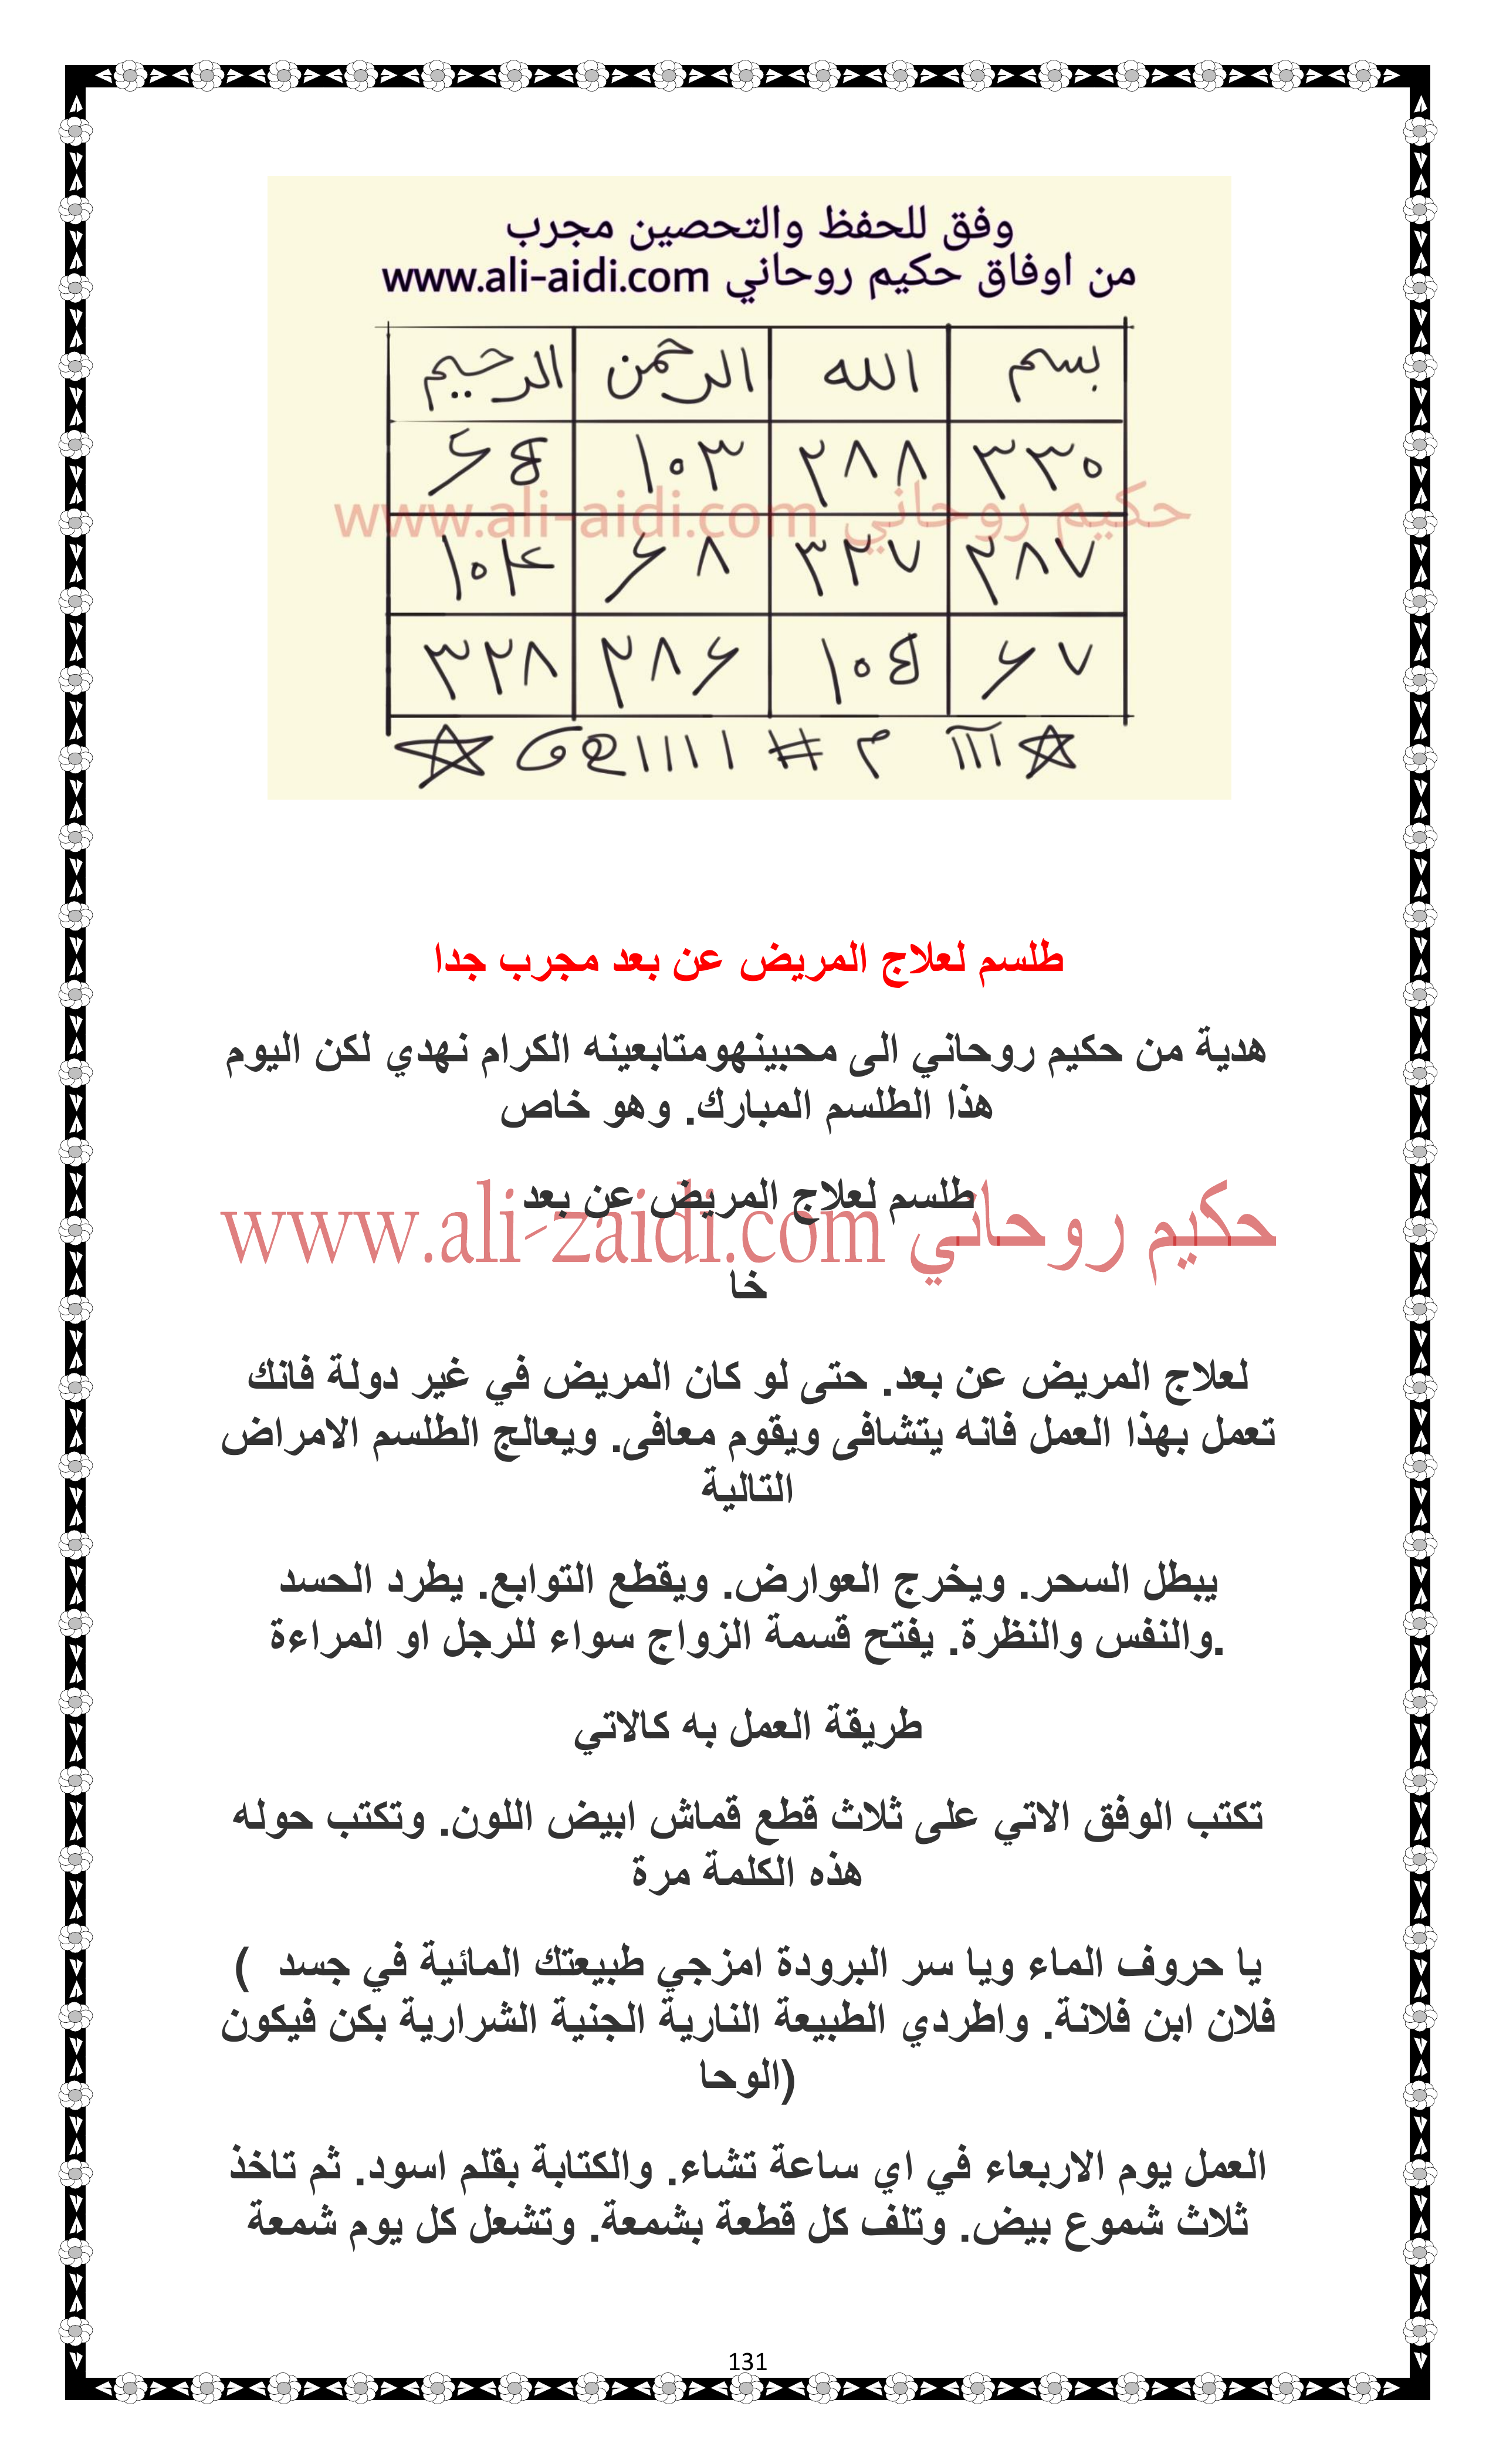 وفق للحفظ والتحصين مجرب
من اوفاق حكيم روحاني www.ali-aidi.com
بسم الله الرحمن الرحيم
٣٣٠ ٢٨٨ ١٠٣ ٦٤
حكيم روحاني www.ali-aidi.com
٢٨٧ ٣٢٧ ٦٨ ١٠٤
٦٧ ١٠٤ ٢٨٦ ٣٢٨
طلسم لعلاج المريض عن بعد مجرب جدا
هدية من حكيم روحاني الى محبينهومتابعينه الكرام نهدي لكن اليوم
هذا الطلسم المبارك. وهو خاص
طلسم لعلاج المريض عن بعد
حكيم روحاني www.ali-zaidi.com
خا
لعلاج المريض عن بعد. حتى لو كان المريض في غير دولة فانك
تعمل بهذا العمل فانه يتشافى ويقوم معافى. ويعالج الطلسم الامراض
التالية
يبطل السحر. ويخرج العوارض. ويقطع التوابع. يطرد الحسد
.والنفس والنظرة. يفتح قسمة الزواج سواء للرجل او المراءة
طريقة العمل به كالاتي
تكتب الوفق الاتي على ثلاث قطع قماش ابيض اللون. وتكتب حوله
هذه الكلمة مرة
يا حروف الماء ويا سر البرودة امزجي طبيعتك المائية في جسد (
فلان ابن فلانة. واطردي الطبيعة النارية الجنية الشرارية بكن فيكون
(الوحا
العمل يوم الاربعاء في اي ساعة تشاء. والكتابة بقلم اسود. ثم تاخذ
ثلاث شموع بيض. وتلف كل قطعة بشمعة. وتشعل كل يوم شمعة
131